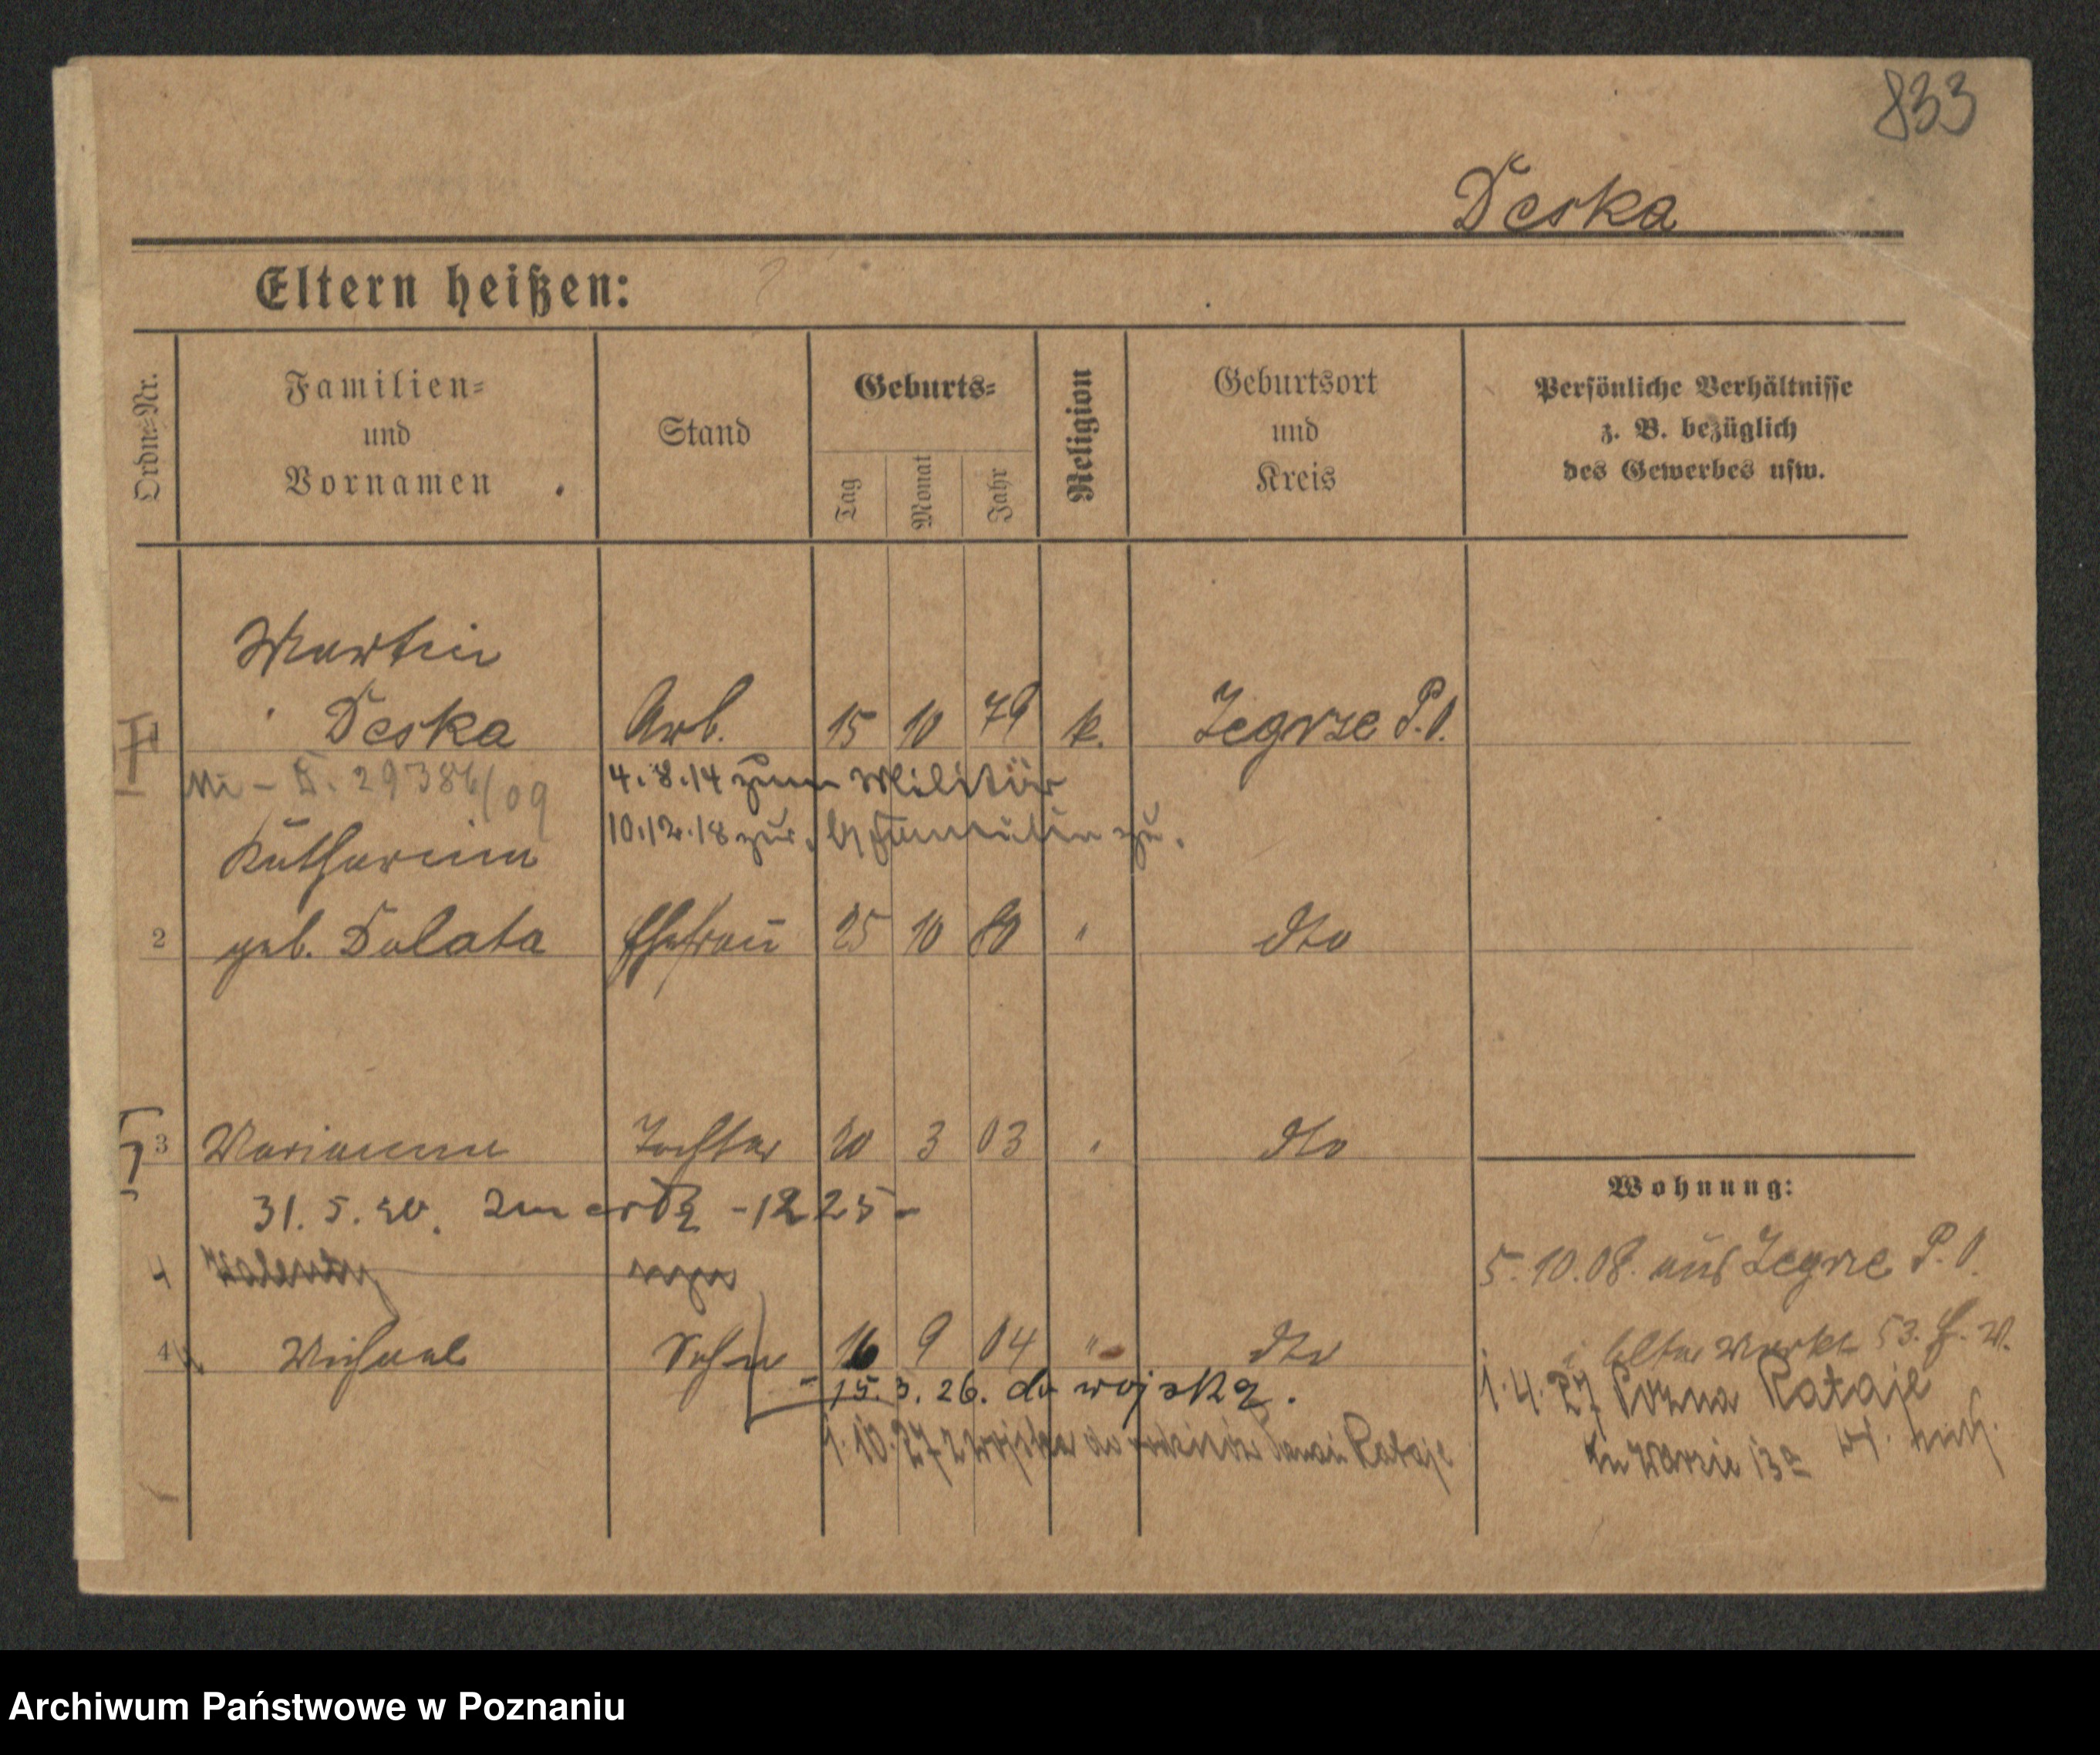 833
Deska
Eltern heißen:
Ordn.-Nr.
Familien-
und
Vornamen
Stand
Geburts-
Tag
Monat
Jahr
Religion
Geburtsort
und
Kreis
Persönliche Verhältnisse
z. B. bezüglich
des Gewerbes usw.
Martin
1 Deska Arb. 15 10 79 k. Zegrze P.O.
29386/09
4.8.14 zum Militär
10.12.18 zur.
Katharina
2 geb. Dolata Ehefrau 25 10 80 " dto
3 Marianna Tochter 20 3 03 " dto
31.5.20. - 1225 -
4 Walenty
4 Michael Sohn 16 9 04 " dto
- 15.3.26. do wojska.
1.10.27 z wojska do Rataje
Wohnung:
5.10.08. aus Zegrze P.O.
Alter Markt 53.
1.4.27 Rataje
13a
Archiwum Państwowe w Poznaniu